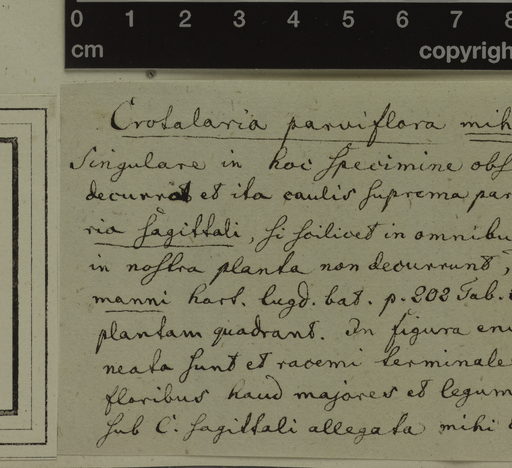 0 1 2 3 4 5 6 7 8
cm copyrigh
Crotalaria parviflora mih
Singulare in hoc specimine obs
decurrat et ita caulis suprema par
ria sagittali, si scilicet in omnibu
in nostra planta non decurrunt,
manni hort. lugd. bat. p. 202 Tab.
plantam quadrant. In figura eni
neata sunt et racemi terminale
floribus haud majores et legum
sub C. sagittali allegata mihi